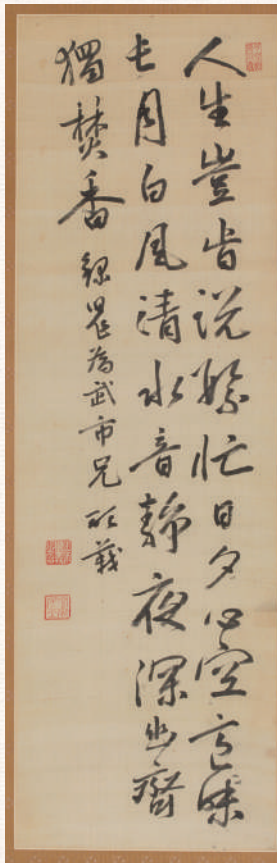 人生豈肯説繁忙日夕心空意味
長月白風清水音静夜深幽齋
獨焚香 為武市兄